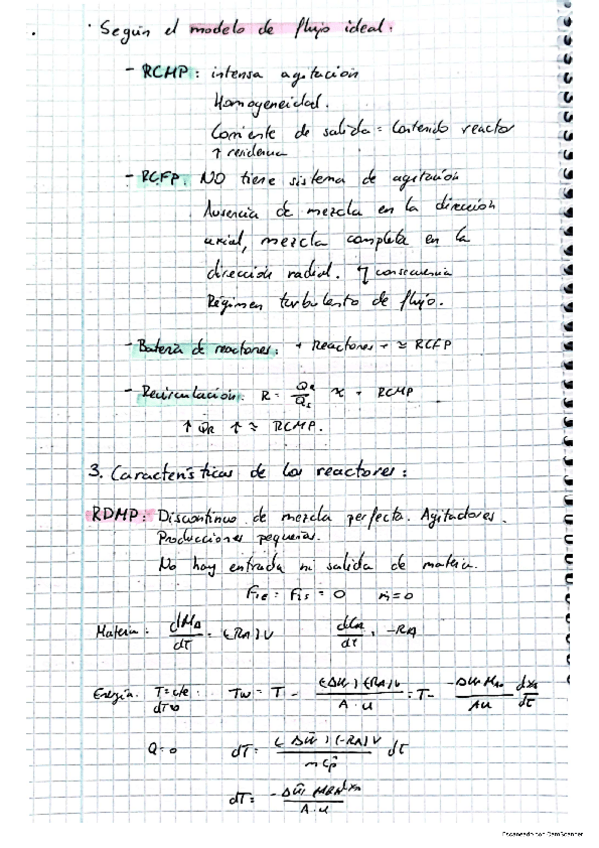 · Según el modelo de flujo ideal:
- RCMP: intensa agitación
Homogeneidad.
Corriente de salida = Contenido reactor
↑ residencia
- RCFP: NO tiene sistema de agitación
Ausencia de mezcla en la dirección
axial, mezcla completa en la
dirección radial. consecuencia
Régimen turbulento de flujo.
- Batería de reactores: + Reactores → ≈ RCFP
- Recirculación: R = Q_R / Q_s + RCMP
↑ QR ↑ ≈ RCMP.
3. Características de los reactores:
RDMP: Discontinuo de mezcla perfecta. Agitadores.
Producciones pequeñas.
No hay entrada ni salida de materia.
Fie = Fis = 0 ṁ=0
Materia: = (RA) V = -RA
Energía: T=cte: Tw = T -
A · U
Q=0 dT =
dT =
A·U
Escaneado con CamScanner